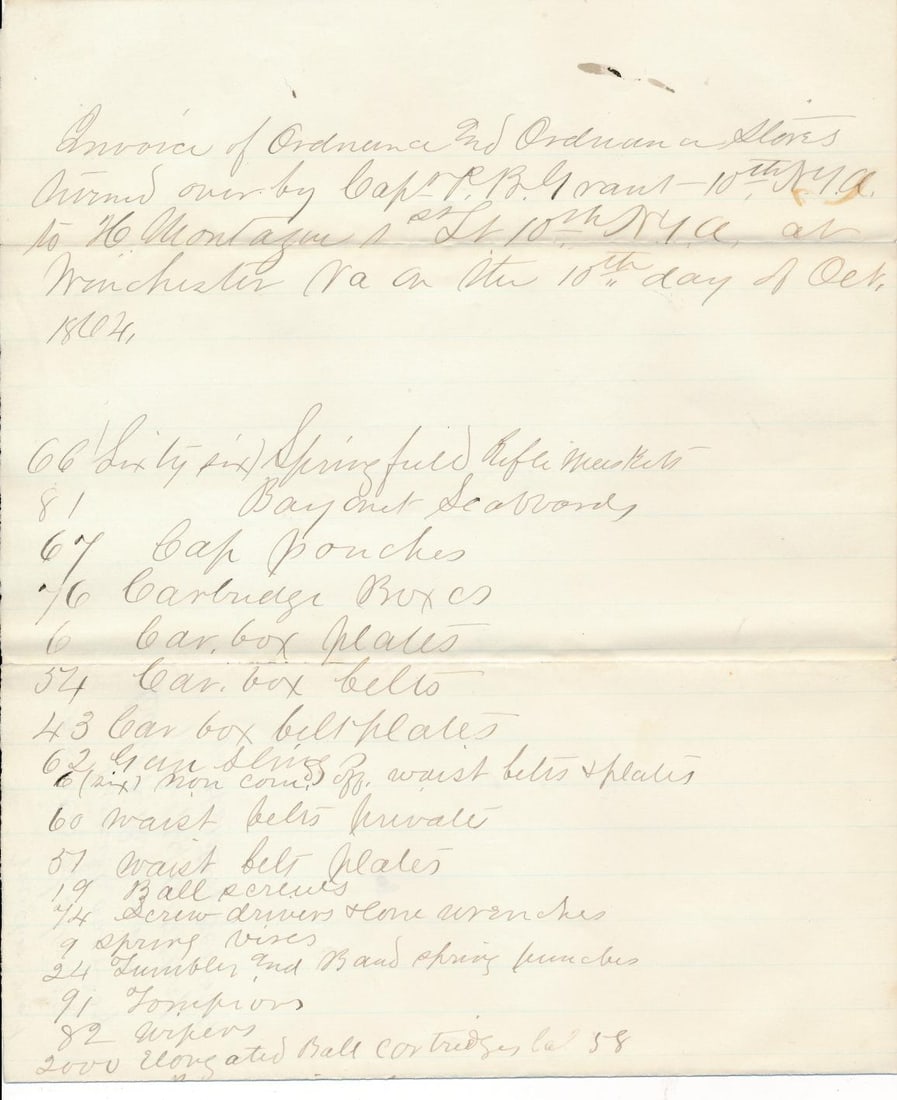 Invoice of Ordnance and Ordnance Stores
turned over by Capt P. B. Grant – 10th N.Y.A.
to H. Montague 1st Lt. 10th N.Y.A. at
Winchester Va on the 10th day of Oct.
1864.
66 (Sixty six) Springfield Rifle Muskets
81 Bayonet Scabbards
67 Cap pouches
76 Cartridge Boxes
6 Car. box plates
54 Car. box belts
43 Car box belt plates
62 Gun Slings
6 (six) Non com'd off. waist belts & plates
60 waist belts private
51 waist belt plates
19 Ball screws
74 Screw drivers & Cone wrenches
9 spring vises
24 Tumbler and Band spring punches
91 Tompions
82 Wipers
2000 Elongated Ball Cartridges Cal 58